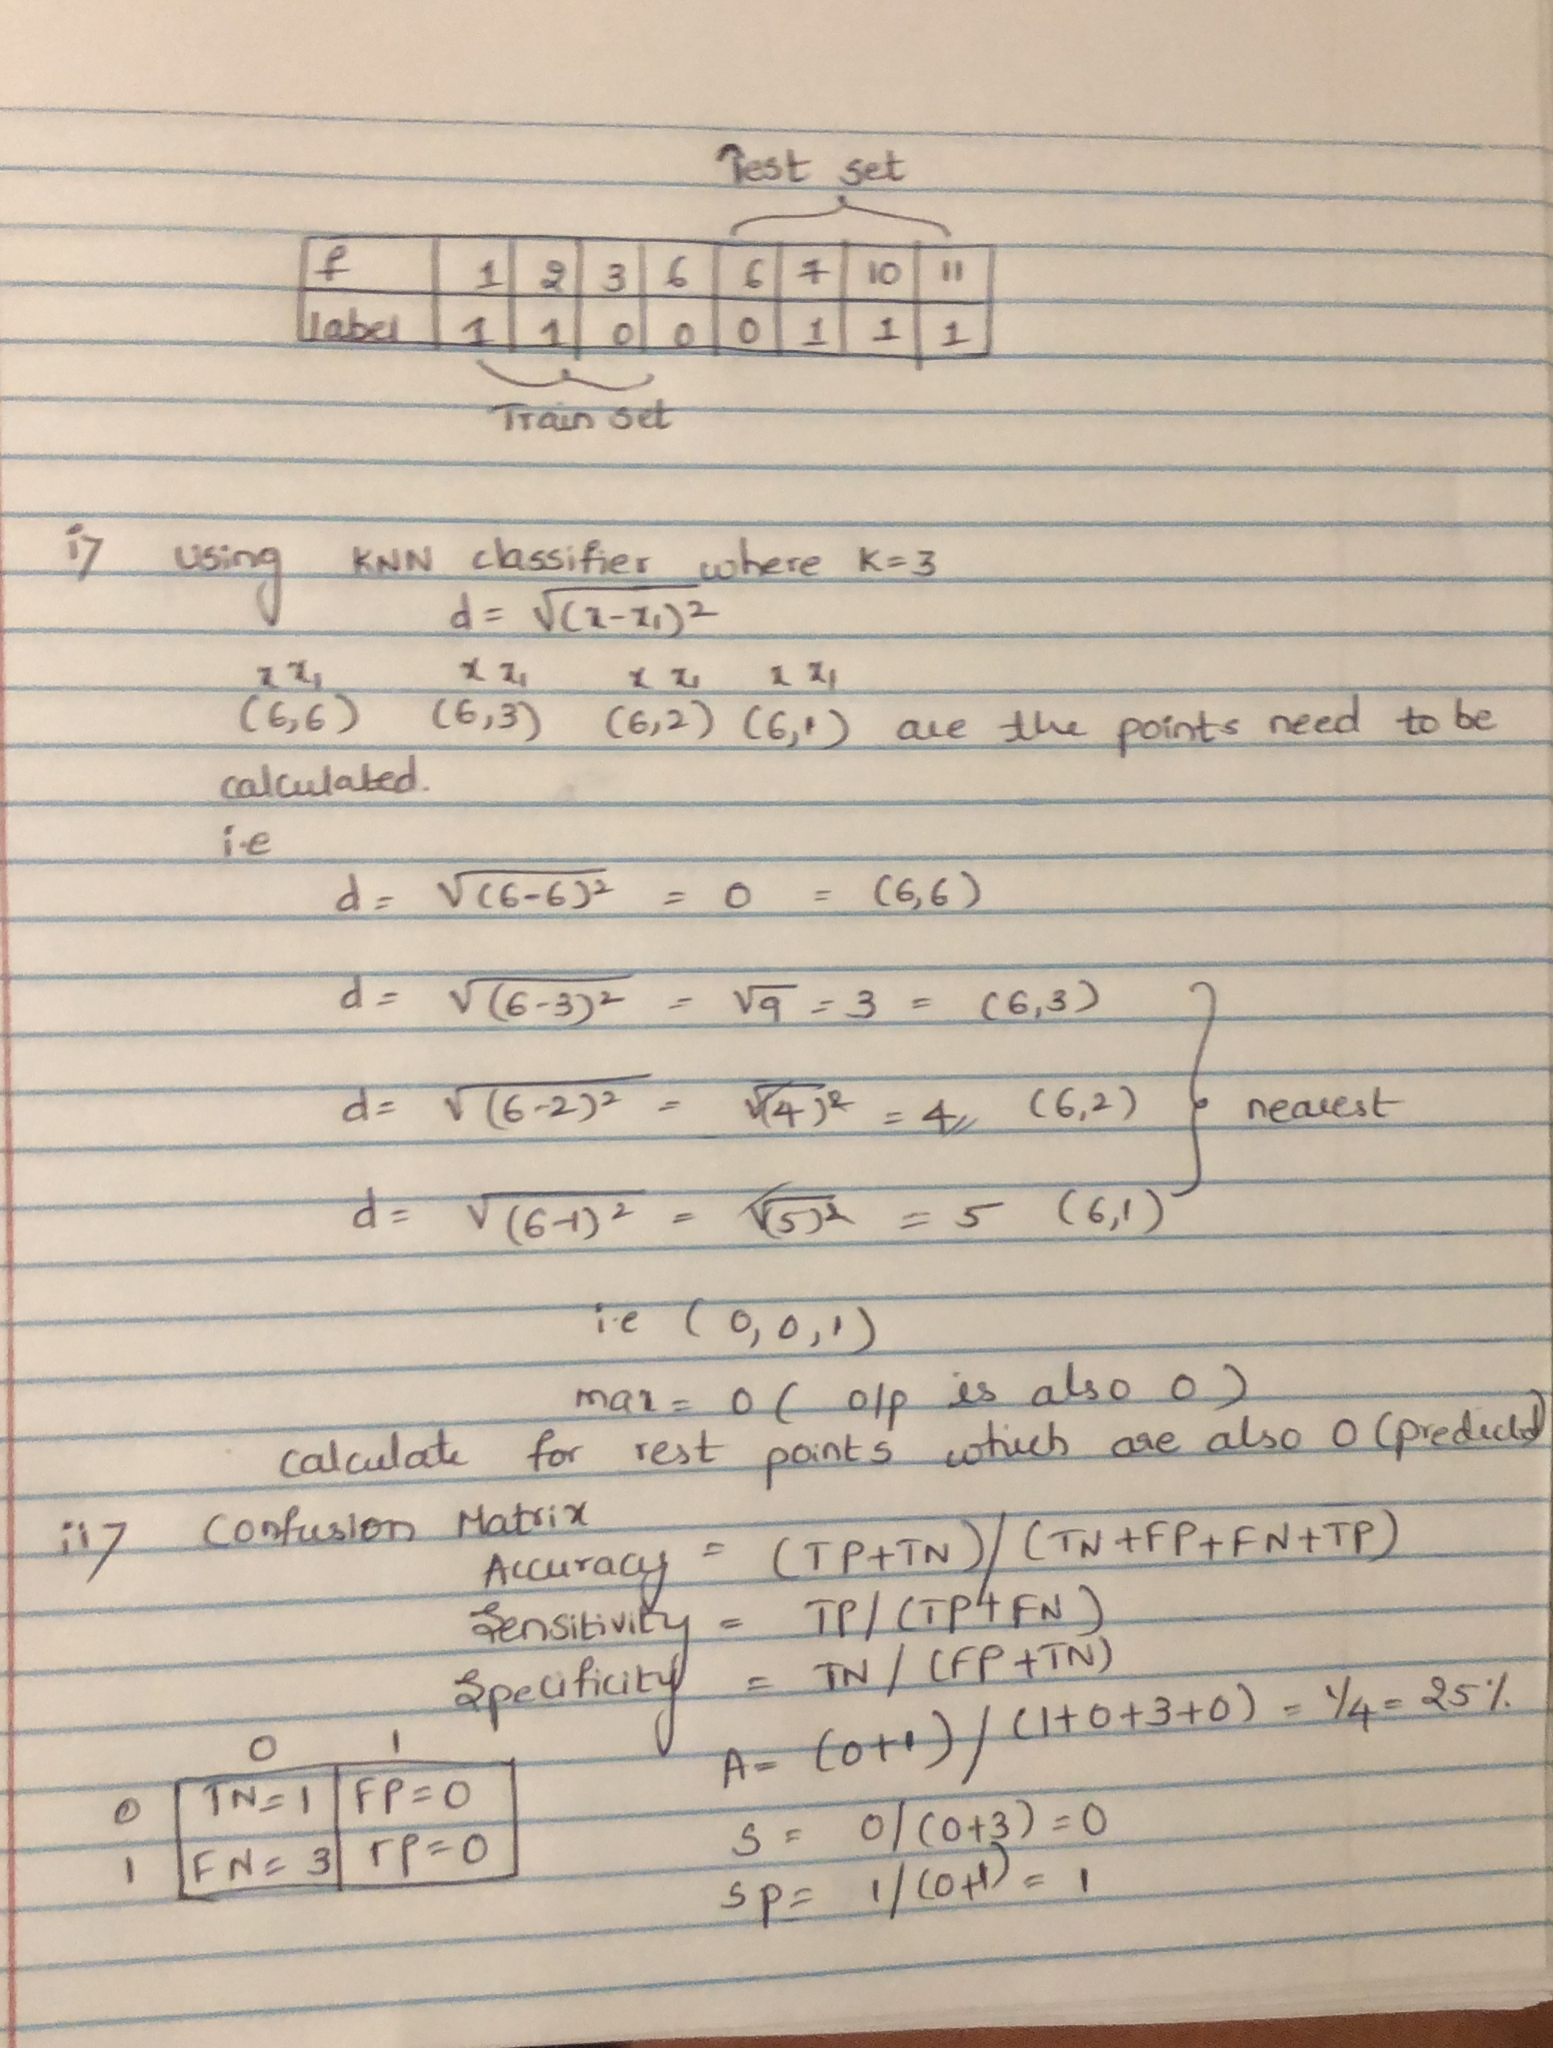 Test set
f 1 2 3 6 6 7 10 11
label 1 1 0 0 0 1 1 1
Train set
i> using KNN classifier where K=3
d = √(x-x₁)²
x x₁ x x₁ x x₁ x x₁
(6,6) (6,3) (6,2) (6,1) are the points need to be
calculated.
i.e
d = √(6-6)² = 0 = (6,6)
d = √(6-3)² = √9 = 3 = (6,3)
d = √(6-2)² = √(4)² = 4 (6,2) } nearest
d = √(6-1)² = √(5)² = 5 (6,1)
i.e (0,0,1)
max = 0 ( o/p is also 0 )
calculate for rest points which are also 0 (predicted)
ii> Confusion Matrix
Accuracy = (TP+TN) / (TN+FP+FN+TP)
Sensitivity = TP / (TP+FN)
Specificity = TN / (FP+TN)
A = (0+1) / (1+0+3+0) = 1/4 = 25%
0 1
0 TN=1 FP=0
1 FN=3 TP=0
S = 0/(0+3) = 0
Sp = 1/(0+1) = 1